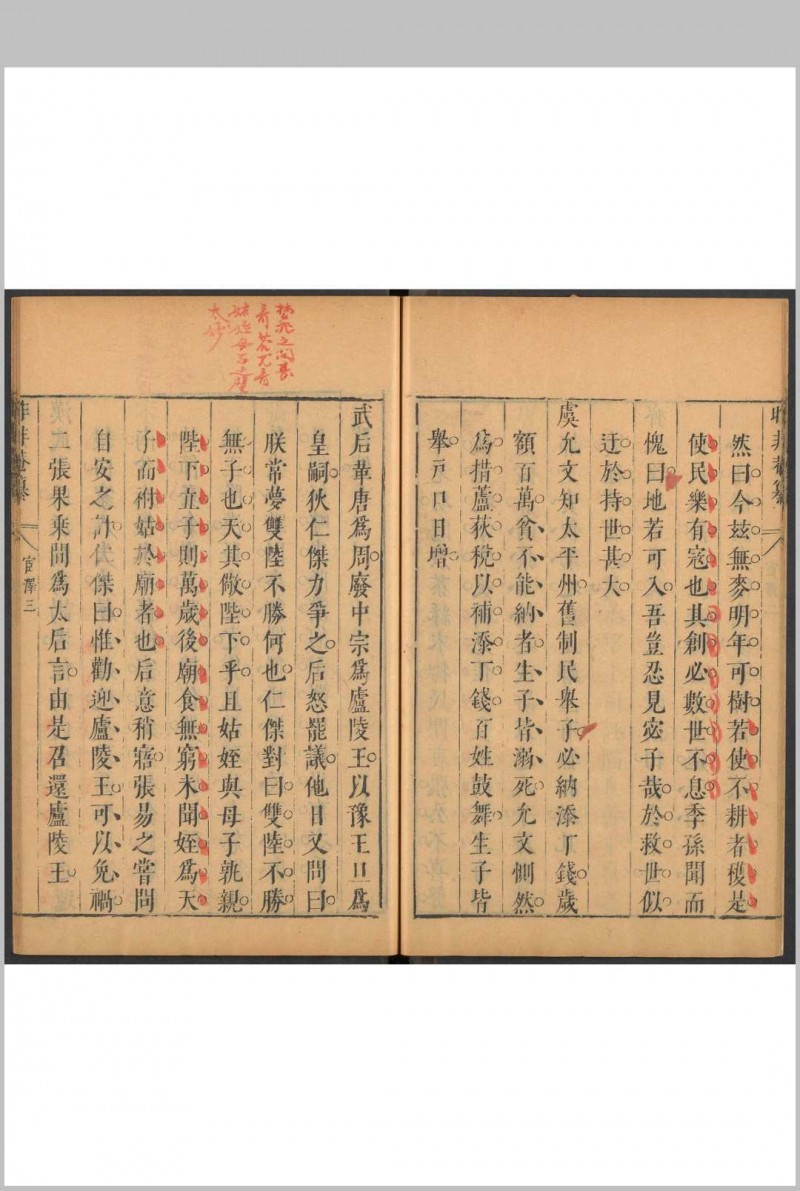 然曰今玆無麥明年可樹若使不耕者穫是
使民樂有寇也其創必數世不息季孫聞而
愧曰地若可入吾豈忍見宓子哉於救世似
迂於持世甚大
虞允文知太平州舊制民舉子必納添丁錢歲
額百萬貧不能納者生子皆溺死允文惻然
爲措蘆荻稅以補添丁錢百姓鼓舞生子皆
舉戶口日增
武后革唐爲周廢中宗爲廬陵王以豫王旦爲
皇嗣狄仁傑力爭之后怒罷議他日又問曰
朕常夢雙陸不勝何也仁傑對曰雙陸不勝
無子也天其儆陛下乎且姑姪與母子孰親
陛下立子則萬歲後廟食無窮未聞姪爲天
子而祔姑於廟者也后意稍寤張易之嘗問
自安之計仁傑曰惟勸迎廬陵王可以免禍
二張果乘間爲太后言由是召還廬陵王
昨非菴纂
官澤三
太妙